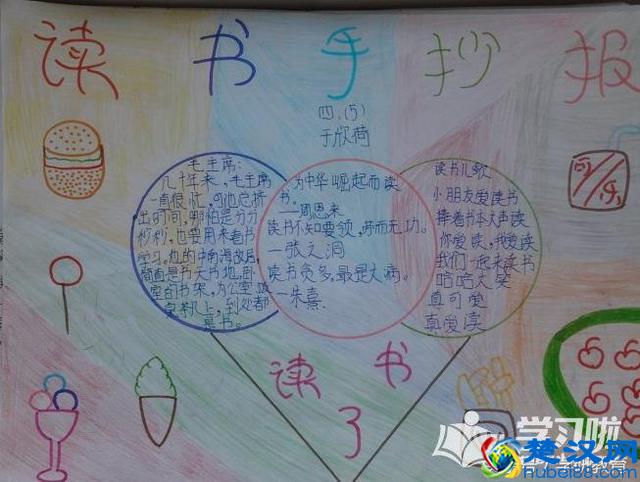 读书手抄报
四.(5)
于欣荷
毛主席:
几十年来,毛主席
一直很忙,可他总挤
出时间,哪怕是分分
秒秒,也要用来看书
学习,他的中南海故居,
简直是书天书地,卧
室的书架,办公室
桌、到处都
是书。
为中华崛起而读
书。
—周恩来
读书不知要领,劳而无功。
—张之洞
读书贪多,最是大病。
—朱熹
读书儿歌
小朋友爱读书
捧着书本大声读
你爱读,我爱读
我们一起来读书
哈哈大笑
真可爱
真爱读
可乐
读书
了
学习啦
楚汉网
hubei88.com